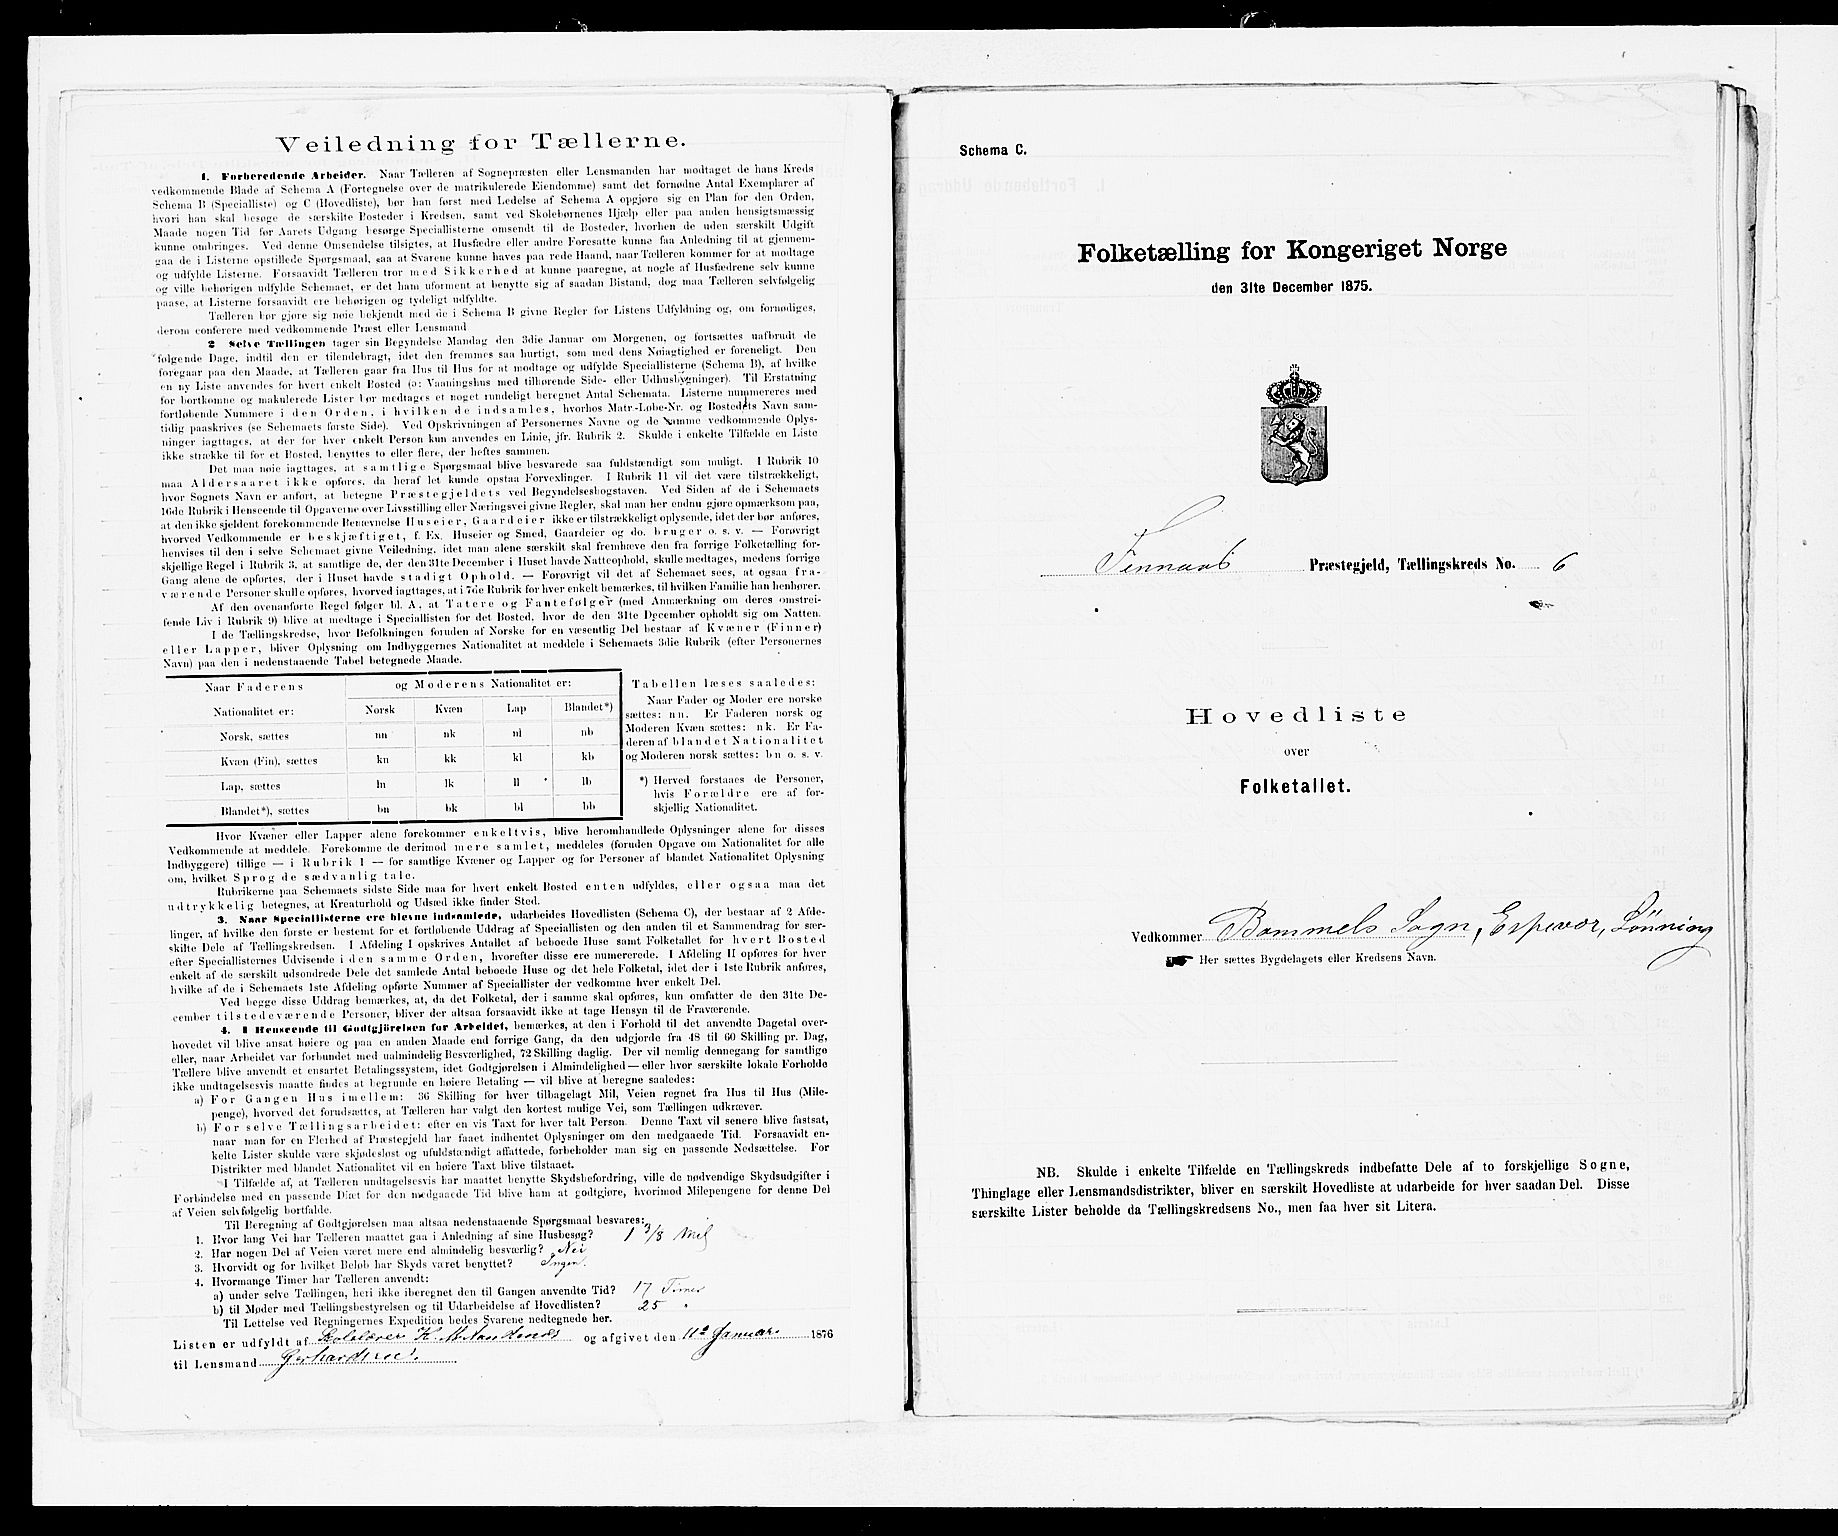 Veiledning for Tællerne.
1. Forberedende Arbeider. Naar Tælleren af Sognepræsten eller Lensmanden har modtaget de hans Kreds
vedkommende Blade af Schema A (Fortegnelse over de matrikulerede Eiendomme) samt det fornødne Antal Exemplarer af
Schema B (Specialliste) og C (Hovedliste), bør han først med Ledelse af Schema A opgjøre sig en Plan for den Orden,
hvori han skal besøge de særskilte Bosteder i Kredsen, samt ved Skolebørnenes Hjælp eller paa anden hensigtsmæssig
Maade nogen Tid før Aarets Udgang besørge Speciallisterne omsendt til de Bosteder, hvorhen de uden særskilt Udgift
kunne ombringes. Ved denne Omsendelse tilsigtes, at Husfædre eller andre Foresatte kunne faa Anledning til at gjennem-
gaa de i Listerne opstillede Spørgsmaal, saa at Svarene kunne haves paa rede Haand, naar Tælleren kommer for at modtage
og udfylde Listerne. Forsaavidt Tælleren tror med Sikkerhed at kunne paaregne, at nogle af Husfædrene selv kunne
og ville behørigen udfylde Schemaet, er det ham uforment at benytte sig af saadan Bistand, dog maa Tælleren selvfølgelig
paase, at Listerne forsaavidt ere behørigen og tydeligt udfyldte.
Tælleren bør gjøre sig nøie bekjendt med de i Schema B givne Regler for Listens Udfyldning og, om fornødiges,
derom conferere med vedkommende Præst eller Lensmand
2 Selve Tællingen tager sin Begyndelse Mandag den 3die Januar om Morgenen, og fortsættes uafbrudt de
følgende Dage, indtil den er tilendebragt, idet den fremmes saa hurtigt, som med dens Nøiagtighed er foreneligt. Den
foregaar paa den Maade, at Tælleren gaar fra Hus til Hus for at modtage og udfylde Speciallisterne (Schema B), af hvilke
en ny Liste anvendes for hvert enkelt Bosted (ɔ: Vaaningshus med tilhørende Side- eller Udhusbygninger). Til Erstatning
for bortkomne og makulerede Lister bør medtages et noget rundeligt beregnet Antal Schemata. Listerne nummereres med
fortløbende Nummere i den Orden, i hvilken de indsamles, hvorhos Matr.-Løbe-Nr. og Bostedets Navn sam-
tidig paaskrives (se Schemaets første Side). Ved Opskrivningen af Personernes Navne og de samme vedkommende Oplys-
ninger iagttages, at der for hver enkelt Person kun anvendes en Linie, jfr. Rubrik 2. Skulde i enkelte Tilfælde en Liste
ikke strække til for et Bosted, benyttes to eller flere, der heftes sammen.
Det maa nøie iagttages, at samtlige Spørgsmaal blive besvarede saa fuldstændigt som muligt. I Rubrik 10
maa Aldersaaret ikke opføres, da heraf let kunde opstaa Forvexlinger. I Rubrik 11 vil det være tilstrækkeligt,
hvor Sognets Navn er anført, at betegne Præstegjeldets ved Begyndelsesbogstaven. Ved Siden af de i Schemaets
16de Rubrik i Henseende til Opgaverne over Livsstilling eller Næringsvei givne Regler, skal man her endnu gjøre opmærksom paa,
at den ikke sjeldent forekommende Benævnelse Huseier, Gaardeier ikke er tilstrækkeligt oplysende, idet der bør anføres,
hvorved Vedkommende er beskjæftiget, f. Ex. Huseier og Smed, Gaardeier og do. bruger o. s. v. — Forøvrigt
henvises til den i selve Schemaet givne Veiledning, idet man alene særskilt skal fremhæve den fra forrige Folketælling for-
skjellige Regel i Rubrik 3, at samtlige de, der den 31te December i Huset havde Natteophold, skulle medtages, medens forrige
Gang alene de opførtes, der i Huset havde stadigt Ophold. — Forøvrigt vil det af Schemaet sees, at ogsaa fra-
værende Personer skulle opføres, hvorved iagttages, at i 7de Rubrik for hver enkelt bemærkes, til hvilken Familie han henhører.
Af den ovenanførte Regel følger bl. A, at Tatere og Fantefølger (med Anmærkning om deres omstrei-
fende Liv i Rubrik 9) blive at medtage i Speciallisten for det Bosted, hvor de den 31te December opholdt sig om Natten.
I de Tællingskredse, hvor Befolkningen foruden af Norske for en væsentlig Del bestaar af Kvæner (Finner)
eller Lapper, bliver Oplysning om Indbyggernes Nationalitet at meddele i Schemaets 3die Rubrik (efter Personernes
Navn) paa den i nedenstaaende Tabel betegnede Maade.
Naar Faderens og Moderens Nationalitet er:
Nationalitet er: Norsk Kvæn Lap Blandet*)
Norsk, sættes nn nk nl nb
Kvæn (Fin), sættes kn kk kl kb
Lap, sættes ln lk ll lb
Blandet*), sættes bn bk bl bb
Tabellen læses saaledes:
Naar Fader og Moder ere norske
sættes: nn. Er Faderen norsk og
Moderen Kvæn sættes: nk. Er Fa-
deren af blandet Nationalitet
og Moderen norsk sættes: bn o. s. v.
*) Herved forstaaes de Personer,
hvis Forældre ere af for-
skjellig Nationalitet.
Hvor Kvæner eller Lapper alene forekommer enkeltvis, blive heromhandlede Oplysninger alene for disses
Vedkommende at meddele. Forekomme de derimod mere samlet, meddeles (foruden Opgave om Nationalitet for alle
Indbyggere) tillige — i Rubrik 1 — for samtlige Kvæner og Lapper og for Personer af blandet Nationalitet Oplysning
om, hvilket Sprog de sædvanlig tale.
Rubrikerne paa Schemaets sidste Side maa for hvert enkelt Bosted enten udfyldes, eller ogsaa maa det
udtrykkelig betegnes, at Kreaturhold og Udsæd ikke finder Sted.
3. Naar Speciallisterne ere blevne indsamlede, udarbeides Hovedlisten (Schema C), der bestaar af 2 Afde-
linger, af hvilke den første er bestemt for et fortløbende Uddrag af Speciallisten og den anden til et Sammendrag for sær-
skilte Dele af Tællingskredsen. I Afdeling I opskrives Antallet af beboede Huse samt Folketallet for hvert Bosted
efter Speciallisternes Udvisende i den samme Orden, hvorefter disse ere numererede. I Afdeling II opføres for hver
enkelt af de særskilt udsondrede Dele det samlede Antal beboede Huse og det hele Folketal, idet der i 1ste Rubrik anføres,
hvilke af de i Schemaets 1ste Afdeling opførte Nummer af Speciallister der vedkomme hver enkelt Del.
Ved begge disse Uddrag bemærkes, at, da det Folketal, der i samme skal opføres, kun omfatter de den 31te De-
cember tilstedeværende Personer, bliver der altsaa forsaavidt ikke at tage Hensyn til de Fraværende.
4. I Henseende til Godtgjörelsen for Arbeidet, bemærkes, at den i Forhold til det anvendte Dagetal over-
hovedet vil blive ansat høiere og paa en anden Maade end forrige Gang, da den udgjorde fra 48 til 60 Skilling pr. Dag,
eller, naar Arbeidet var forbundet med ualmindelig Besværlighed, 72 Skilling daglig. Der vil nemlig dennegang for samtlige
Tællere blive anvendt et ensartet Betalingssystem, idet Godtgjørelsen i Almindelighed — eller hvor særskilte lokale Forholde
ikke undtagelsesvis maatte findes at begrunde en høiere Betaling — vil blive at beregne saaledes:
a) For Gangen Hus imellem: 36 Skilling for hver tilbagelagt Mil, Veien regnet fra Hus til Hus (Mile-
penge), hvorved det forudsættes, at Tælleren har valgt den kortest mulige Vei, som Tællingen udkræver.
b) For selve Tællingsarbeidet: efter en vis Taxt for hver talt Person. Denne Taxt vil senere blive fastsat,
naar man for en Flerhed af Præstegjeld har faaet indhentet Oplysninger om den medgaaede Tid. Forsaavidt en-
kelte Lister skulde være skjødesløst og ufuldstændigt affattede, forbeholder man sig en passende Nedsættelse. For
Distrikter med blandet Nationalitet vil en høiere Taxt blive tilstaaet.
I Tilfælde af, at Tælleren undtagelsesvis har maattet benytte Skydsbefordring, ville de nødvendige Skydsudgifter i
Forbindelse med en passende Diæt for den medgaaede Tid blive ham at godtgjøre, hvorimod Milepengene for denne Del
af Veien selvfølgelig bortfalde.
Til Beregning af Godtgjørelsen maa altsaa nedenstaaende Spørgsmaal besvares:
1. Hvor lang Vei har Tælleren maattet gaa i Anledning af sine Husbesøg? 1 3/8 Mil
2. Har nogen Del af Veien været mere end almindelig besværlig? Nei
3. Hvorvidt og for hvilket Beløb har Skyds været benyttet? Ingen.
4. Hvormange Timer har Tælleren anvendt:
a) under selve Tællingen, heri ikke iberegnet den til Gangen anvendte Tid? 17 Timer
b) til Møder med Tællingsbestyrelsen og til Udarbeidelse af Hovedlisten? 25 "
Til Lettelse ved Regningernes Expedition bedes Svarene nedtegnede her.
Listen er udfyldt af Skolelærer K. og afgivet den 11te Januar 1876
til Lensmand Gerhardsen.
Schema C.
Folketælling for Kongeriget Norge
den 31te December 1875.
Finnaas Præstegjeld, Tællingskreds No. 6
Hovedliste
over
Folketallet.
Vedkommer Bømmels Sogn, Espevær, Lönning
Her sættes Bygdelagets eller Kredsens Navn.
NB. Skulde i enkelte Tilfælde en Tællingskreds indbefatte Dele af to forskjellige Sogne,
Thinglage eller Lensmandsdistrikter, bliver en særskilt Hovedliste at udarbeide for hver saadan Del. Disse
særskilte Lister beholde da Tællingskredsens No., men faa hver sit Litera.